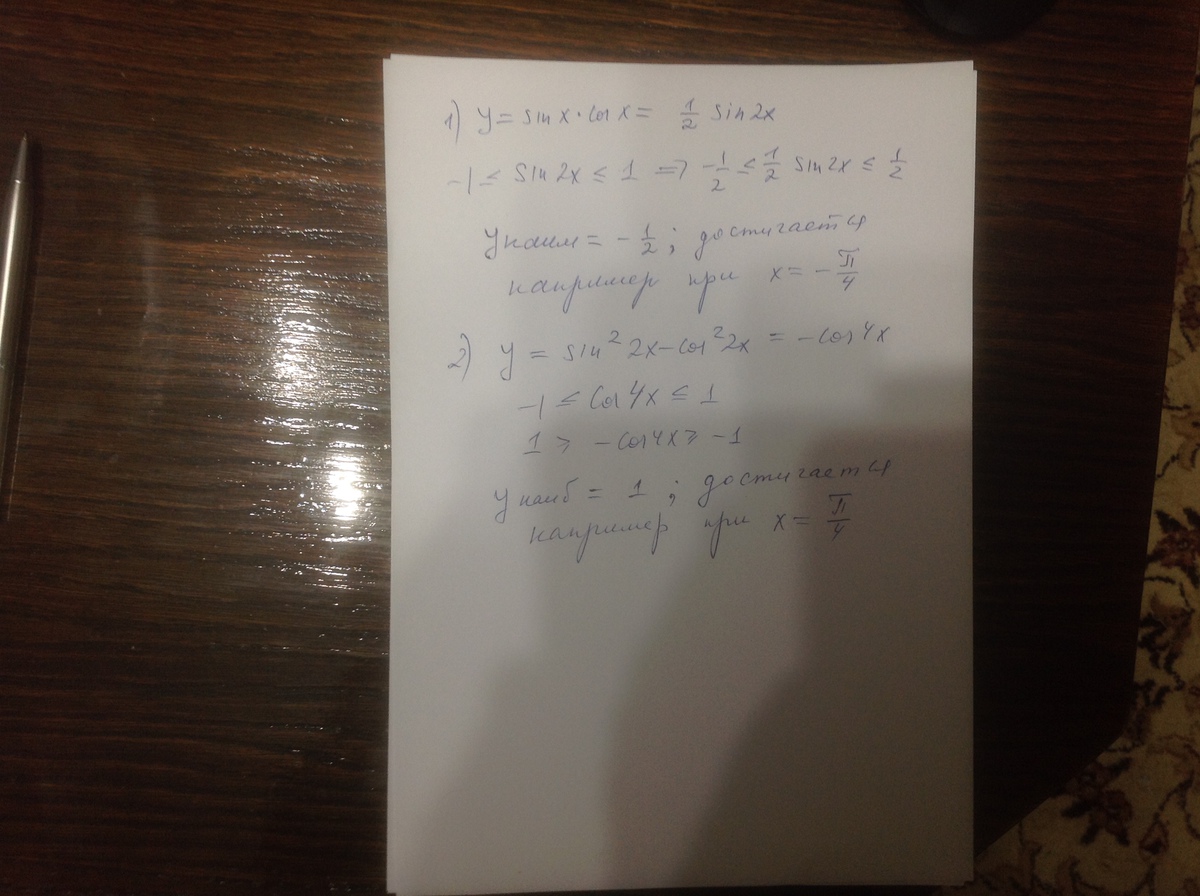 1) y = sin x · cos x = 1/2 sin 2x
-1 ≤ sin 2x ≤ 1 => -1/2 ≤ 1/2 sin 2x ≤ 1/2
y наим = - 1/2 ; достигается
например при x = - π/4
2) y = sin² 2x - cos² 2x = - cos 4x
-1 ≤ cos 4x ≤ 1
1 ≥ - cos 4x ≥ -1
y наиб = 1 ; достигается
например при x = π/4